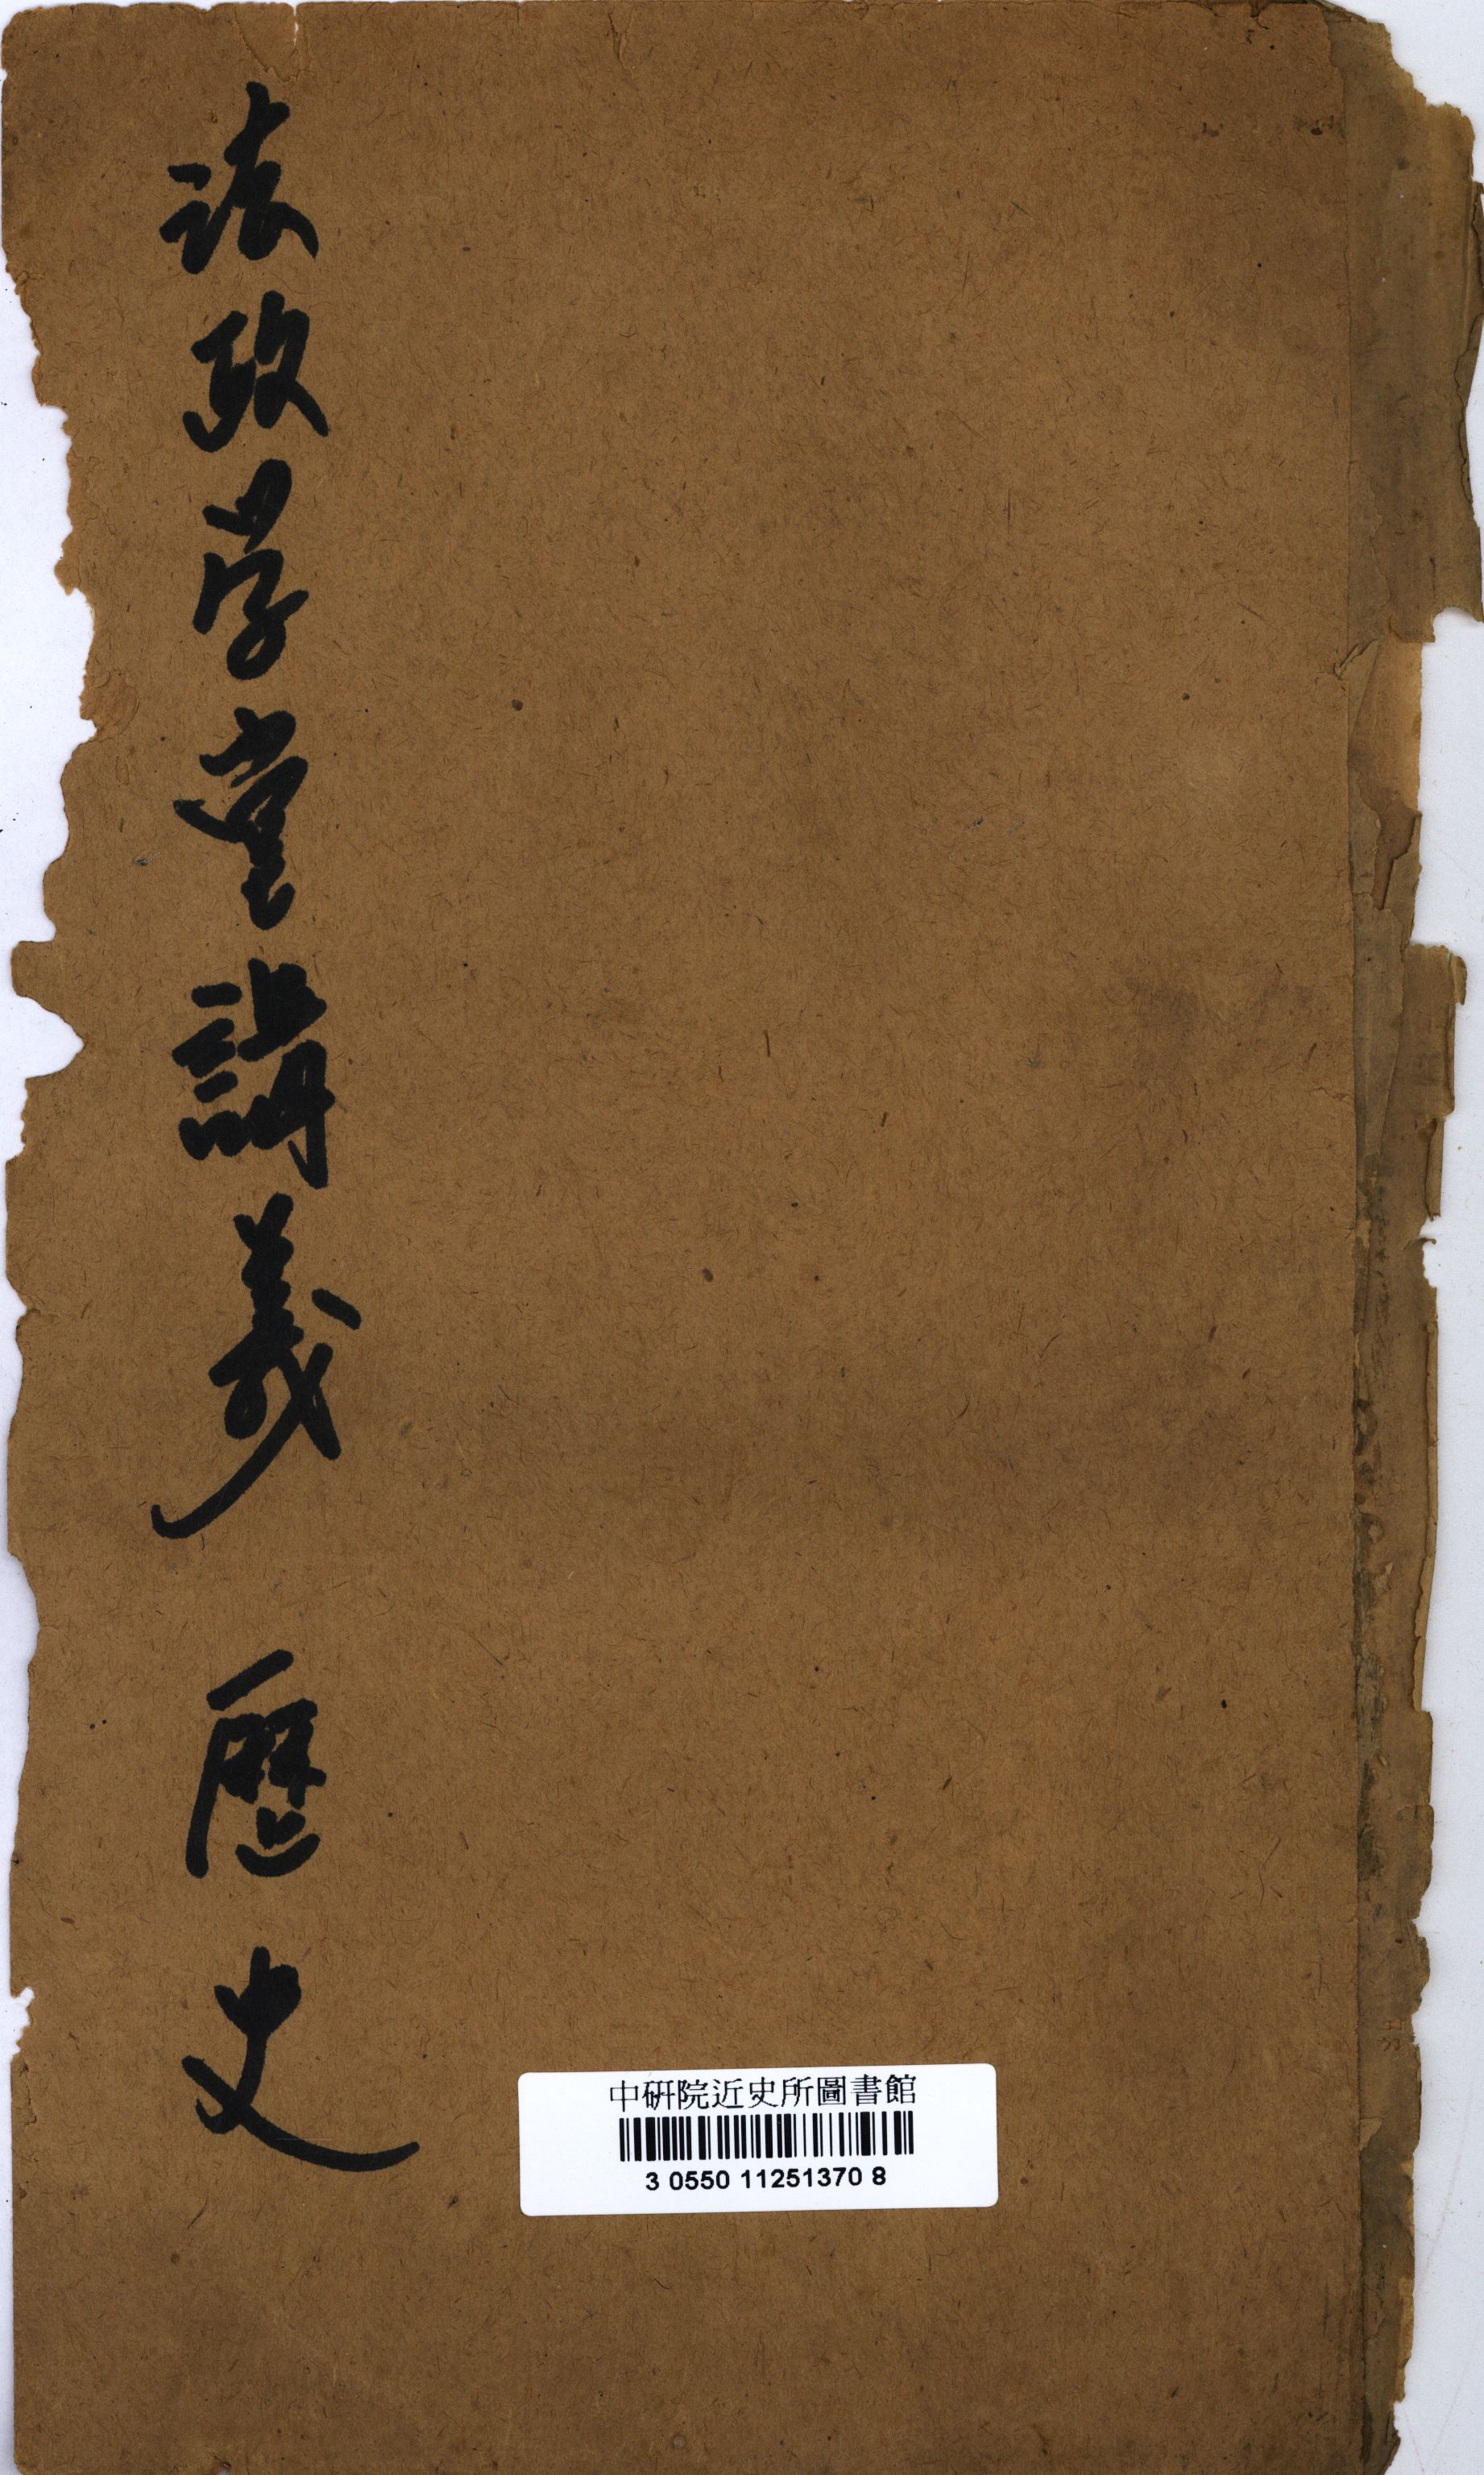 法政学堂講義 歷史
中研院近史所圖書館
3 0550 11251370 8